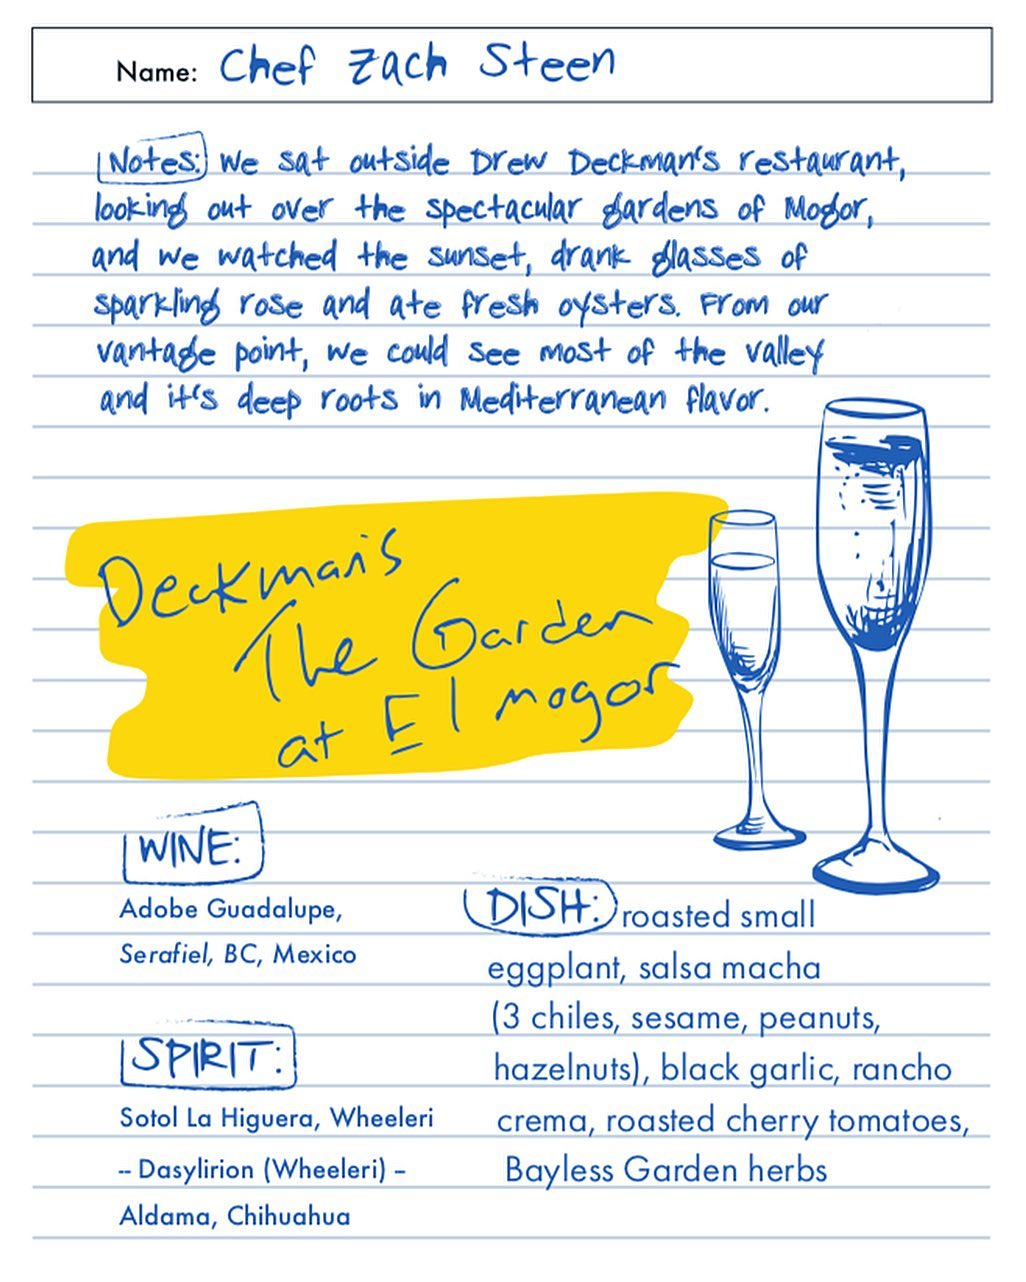 Name: Chef Zach Steen
Notes: We sat outside Drew Deckman's restaurant,
looking out over the spectacular gardens of Mogor,
and we watched the sunset, drank glasses of
sparkling rose and ate fresh oysters. From our
vantage point, we could see most of the valley
and it's deep roots in Mediterranean flavor.
Deckman's
The Garden
at El mogor
WINE:
Adobe Guadalupe,
Serafiel, BC, Mexico
SPIRIT:
Sotol La Higuera, Wheeleri
-- Dasylirion (Wheeleri) –
Aldama, Chihuahua
DISH: roasted small
eggplant, salsa macha
(3 chiles, sesame, peanuts,
hazelnuts), black garlic, rancho
crema, roasted cherry tomatoes,
Bayless Garden herbs